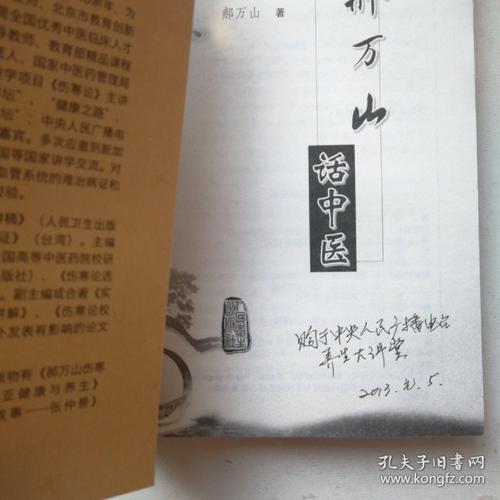 余年、为
教师、北京市教育创新
局全国优秀中医临床人才
导教师、教育部精品课程
责人、国家中医药管理局
教学项目《伤寒论》主讲
坛"、"健康之路"、
坛"、中央人民广播电
嘉宾。多次应邀到新加
国等国家讲学交流。对
血管系统的难治病证和
经验。
讲稿》（人民卫生出版
证》（台湾）。主编
全国高等中医药院校研
版社）、《伤寒论选
。副主编或合著《实
讲解、《伤寒论校
外发表有影响的论文
版物有《郝万山伤寒
亚健康与养生》
故事——张仲景》
郝万山 著
郝万山
话中医
购于中央人民广播电台
养生大讲堂
2013.元.5.
孔夫子旧书网
www.kongfz.com